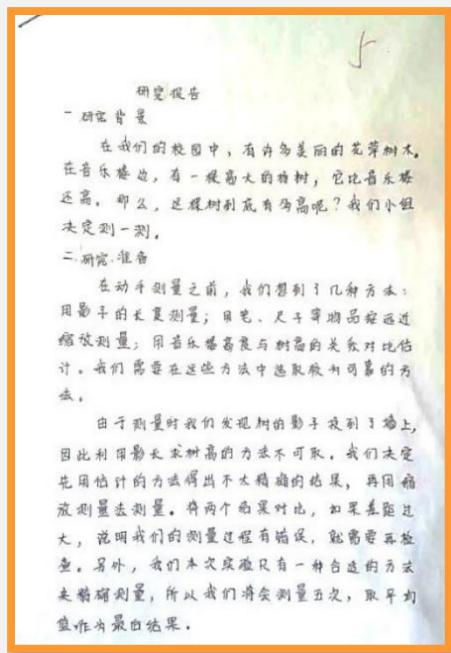 5
研究报告
一 研究背景
在我们的校园中，有许多美丽的花草树木。
在音乐楼边，有一棵高大的树，它比音乐楼
还高。那么，这棵树到底有多高呢？我们小组
决定测一测。
二.研究准备
在动手测量之前，我们想到了几种方法：
用影子的长度测量；用笔、尺子等物品按远近
缩放测量；用音乐楼高度与树高的关系对比估
计。我们需要在这些方法中选取较为可靠的方
法。
由于测量时我们发现树的影子投到了墙上，
因此利用影长求树高的方法不可取。我们决定
先用估计的方法得出不太精确的结果，再用缩
放测量法测量。将两个结果对比，如果差距过
大，说明我们的测量过程有错误，就需要再检
查。另外，我们本次实验只有一种合适的方法
来精确测量，所以我们将会测量五次，取平均
值作为最后结果。